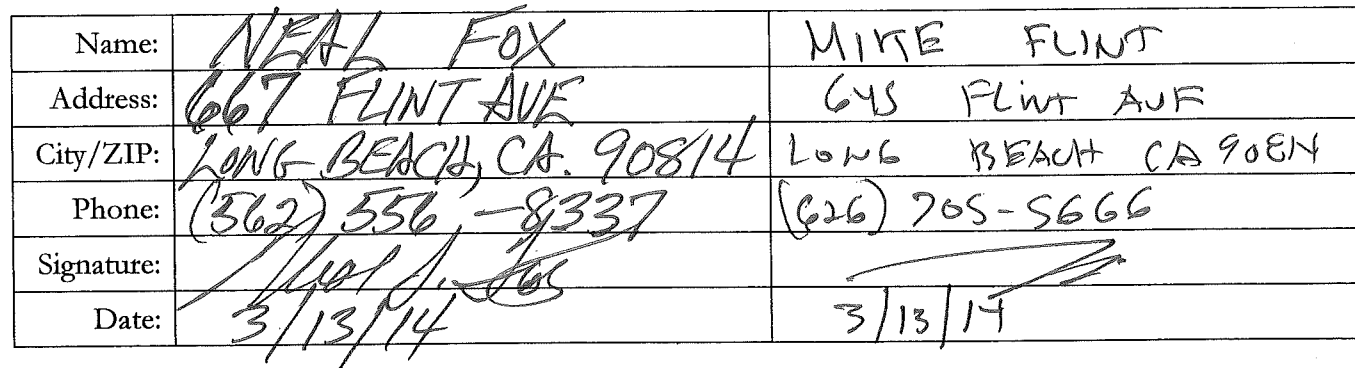 Name: NEAL FOX MIKE FLINT
Address: 667 FLINT AVE 645 FLINT AVE
City/ZIP: LONG BEACH, CA. 90814 LONG BEACH CA 90814
Phone: (562) 556-8337 (626) 705-5666
Signature:
Date: 3/13/14 3/13/14